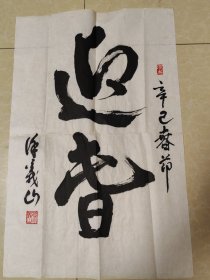 辛巳春节
迎春
義山